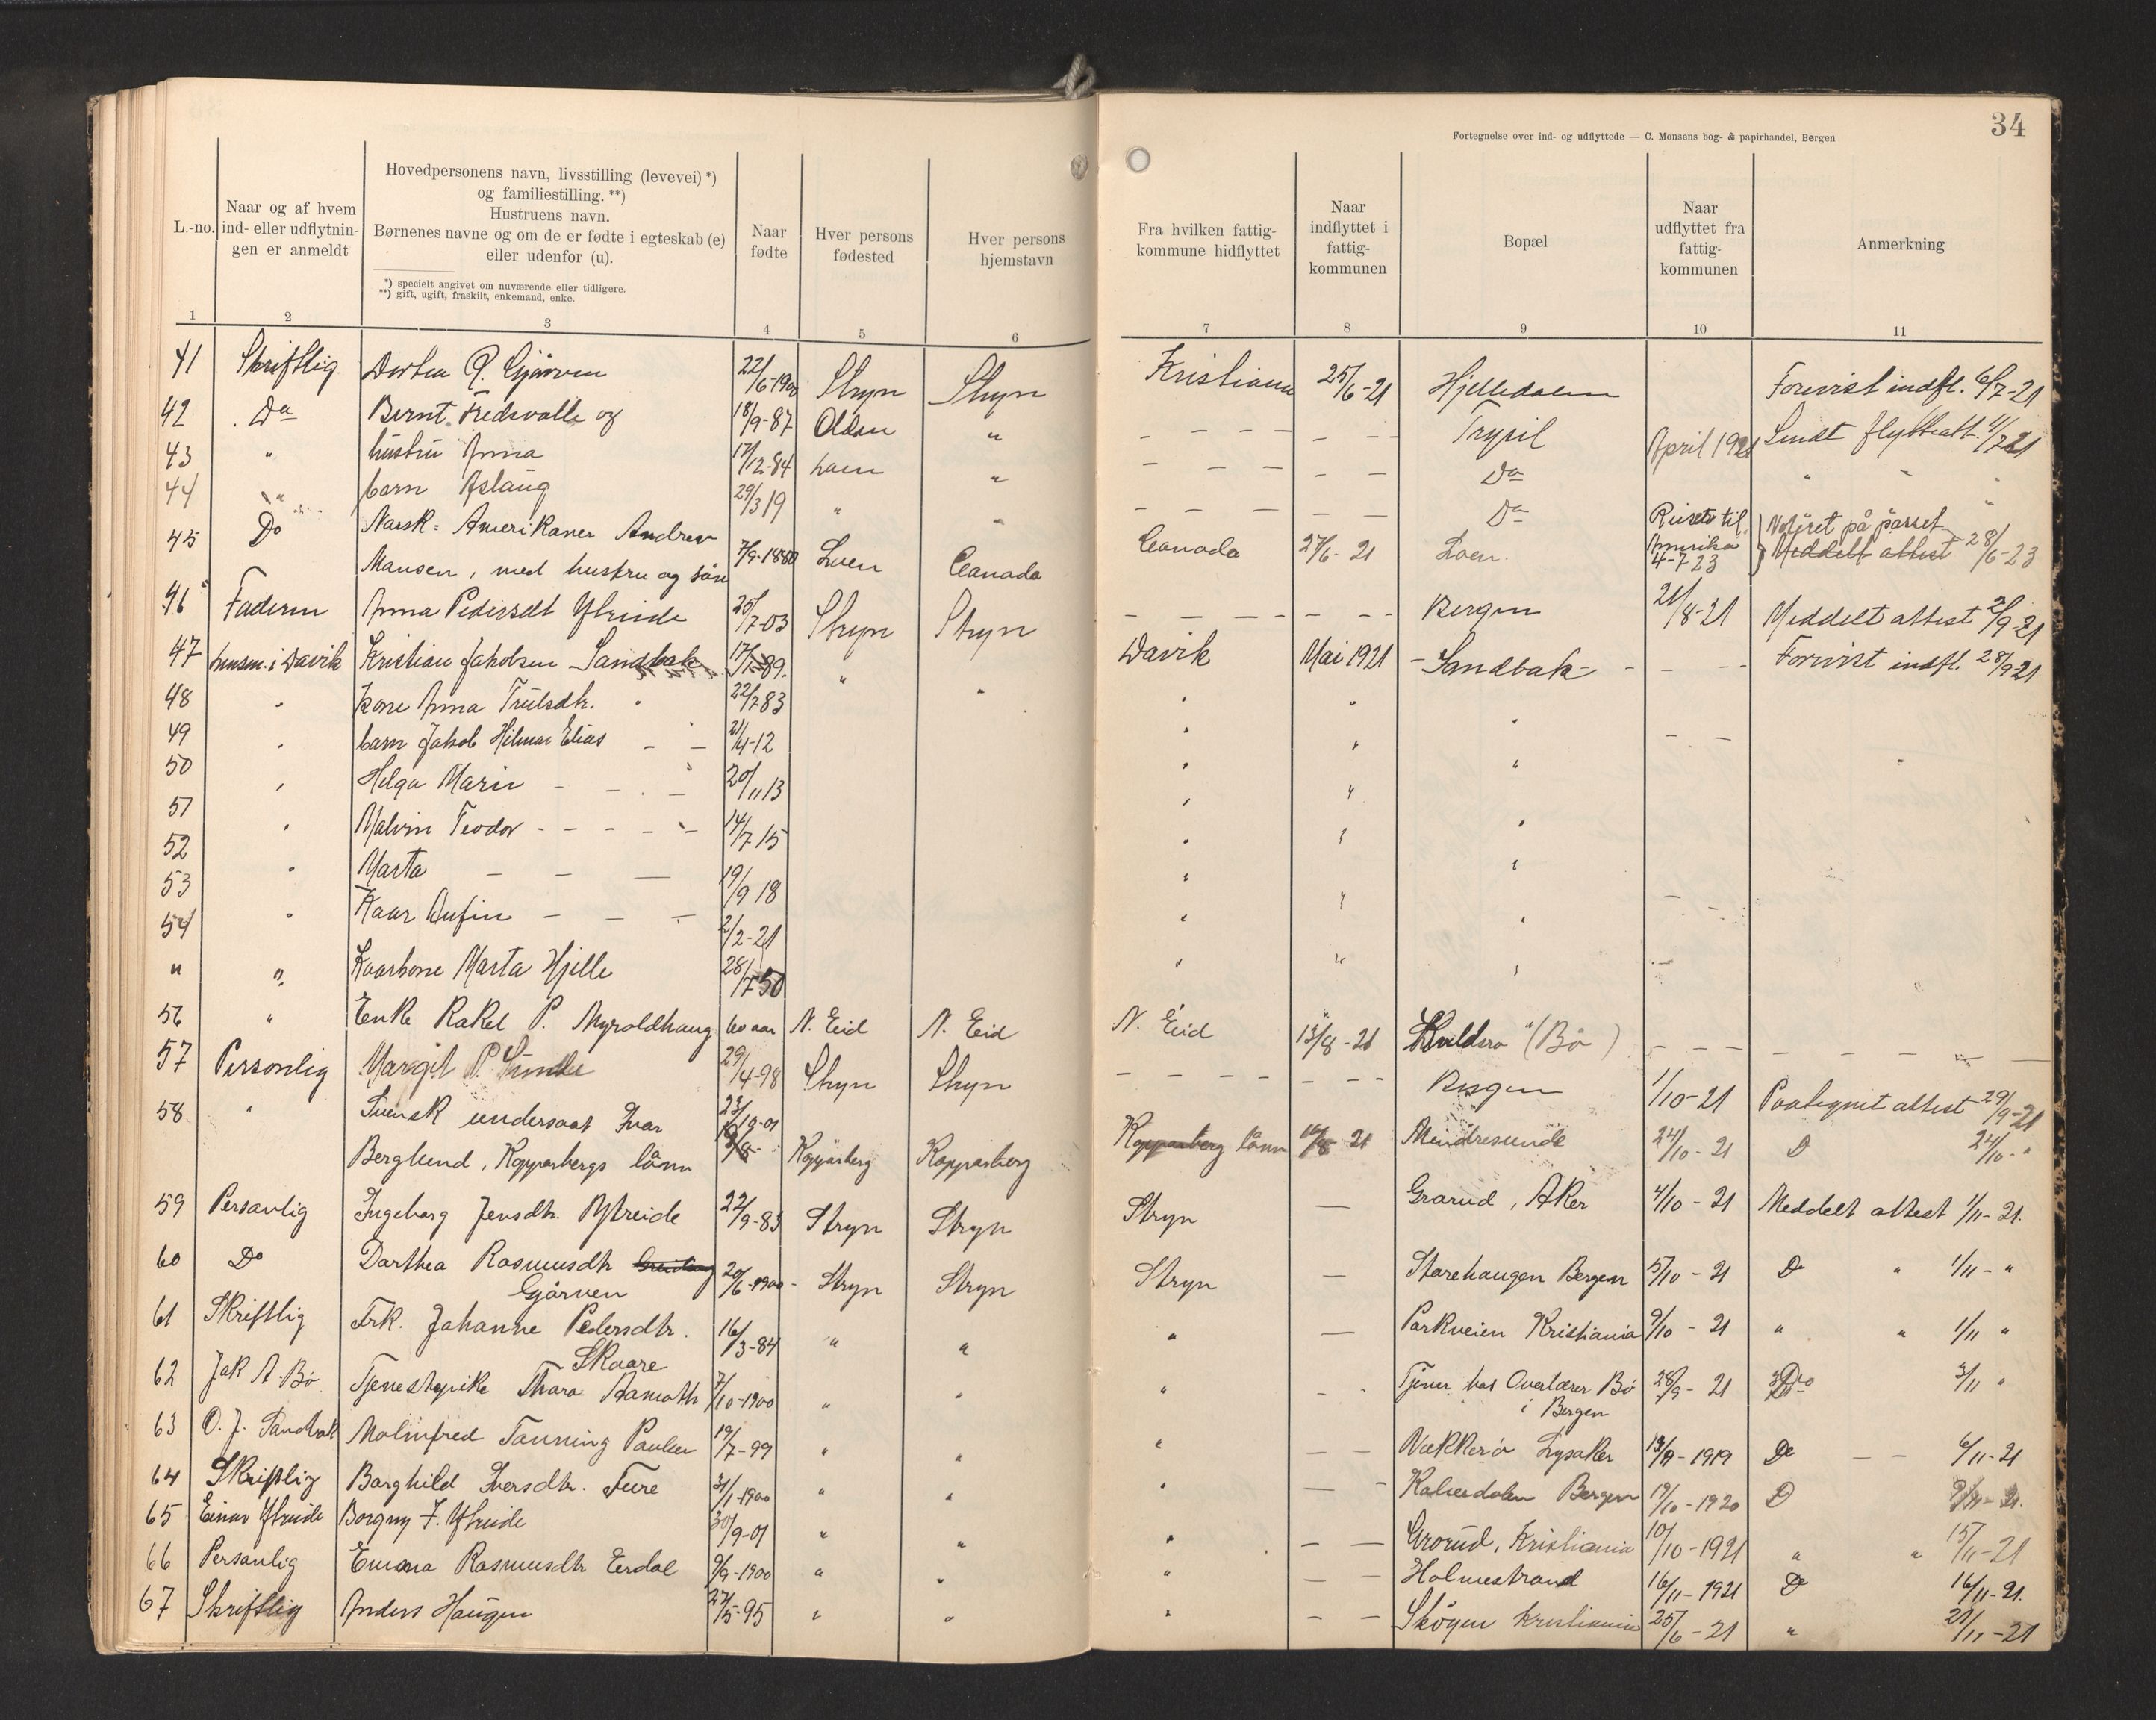 34
Fortegnelse over ind- og udflyttede — C. Monsens bog- & papirhandel, Bergen
L.-no.
Naar og af hvem
ind- eller udflytnin-
gen er anmeldt
Hovedpersonens navn, livsstilling (levevei) *)
og familiestilling. **)
Hustruens navn.
Børnenes navne og om de er fødte i egteskab (e)
eller udenfor (u).
*) specielt angivet om nuværende eller tidligere.
**) gift, ugift, fraskilt, enkemand, enke.
Naar
fødte
Hver persons
fødested
Hver persons
hjemstavn
Fra hvilken fattig-
kommune hidflyttet
Naar
indflyttet i
fattig-
kommunen
Bopæl
Naar
udflyttet fra
fattig-
kommunen
Anmerkning
1 2 3 4 5 6 7 8 9 10 11
41 Skriftlig Dortea R. Gjørven 22/6-1900 Stryn Stryn Kristiania 25/6-21 Hjelledalen Forevist indfl. 6/7-21
42 Do Bernt Fredsvolle og 18/9-87 Olden " - - - - - - - Trysil April 1921 Sendt flytteatt. 4/7 21
43 " hustru Anna 17/12-84 Loen " - - - - - - Do " " "
44 " barn Aslaug 29/3 19 " " - - - - - - - Do "
45 Do Norsk-Amerikaner Andrew
Mansen, med hustru og søn 7/9-1880 Loen Canada Canada 27/6-21 Loen. Reiste til Amerika 4-7-23 Noteret på passet
Meddelt attest 28/6-23
46 Faderen Anna Pedersdt Ytreide 25/7-03 Stryn Stryn - - - - - - - Bergen 21/8-21 Meddelt attest 2/9-21
47 lensm. i Davik Kristian Jakobsen Sandbak 17/1-89. " " Davik Mai 1921 - Sandbak - - - - - Forevist indfl. 28/9 21
48 " kone Anna Trulsdtr. " 22/7 83 " " "
49 " barn Jakob Hilmar Elias - - 21/4-12 " " " - -
50 " Helga Marie - - - 20/11 13 " " "
51 " Malvin Teodor - - - - - 14/7 15 " " "
52 " Marta - - - 19/9 18 " " "
53 " Kaar Aufin - - - 2/2-21 " " " - -
54
" " Kaarkone Marta Hjelle 28/7 50 " " "
56 " Enke Rakel P. Myroldhaug 60 aar N. Eid N. Eid N. Eid 13/8-21 (Bø) - - - - - - - -
57 Personlig Margit P. Sunde 29/4-98 Stryn Stryn - - - - - - - Bergen 1/10-21 Paategnet attest 29/9-21
58 " Svensk undersaat Ivar
Berglund, Kopparbergs länn Kopparberg Kopparberg Kopparberg länn 21 Mindresunde 24/10-21 D 24/10- "
59 Personlig Ingeborg Jensdtr. Ytreide 22/9-83 Stryn Stryn Stryn — Grorud, Aker 4/10-21 Meddelt attest 1/11-21.
60 Do Dorthea Rasmusdtr
Gjørven 20/6-1900 - Stryn Stryn Stryn — Storehaugen Bergen 5/10-21 Do " 1/11- "
61 Skriftlig Frk. Johanne Pedersdtr.
Skaare 16/3-84 " " " — Parkveien Kristiania 9/10-21 " " 1/11 "
62 Jak A. Bø Tjenestepike Thora Aamoth 7/10-1900 " " " - - Tjener hos Overlærer Bø
i Bergen 28/9-21 Do 3/11 "
63 O. J. Sandbak Malmfred Tonning Paulsen 19/7-99 " " " - - Vækkerø Lysaker 13/9-1919 Do - - 6/11-21
64 Skriftlig Borghild Iversdtr. Fure 31/1-1900 " " " — - Kalvedalen Bergen 19/10-1920 D 21.
65 Einar Ytreide Borgny J. Ytreide 30/9-01 " " " - — Grorud, Kristiania 10/10-1921 " " 15/11-21
66 Personlig Emma Rasmusdtr Eerdal 9/9-1900 " " " - — Holmestrand 16/11-1921 Do 16/11-21.
67 Skriftlig Anders Haugen 27/5-95 " " " - - Skøyen Kristiania 25/6-21 " 21/11-21